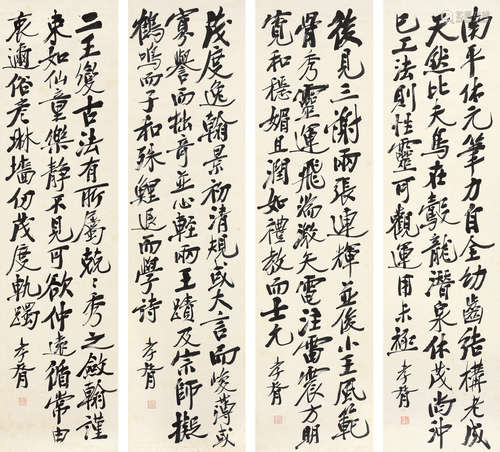 南平休元筆力自全幼齒結構老成
天然比夫鳥在鷇龍潛泉休茂尚沖
已工法則性靈可觀運用未極 孝胥
後見三謝兩張連輝並俊小王風範
骨秀靈運飛湍激矢電注雷震方明
寬和穩媚且潤如禮教而士允 孝胥
茂度逸翰景初清規或大言而峻薄或
寡譽而拙奇並心輕兩王蹟及宗師擬
鶴鳴而子和殊鯉退而學詩 孝胥
二王變古法有所屬兢兢秀之斂翰謹
束如仙童樂靜不見可欲仲遠循常由
衷邇俗季琳墻仞茂度軌躅 孝胥